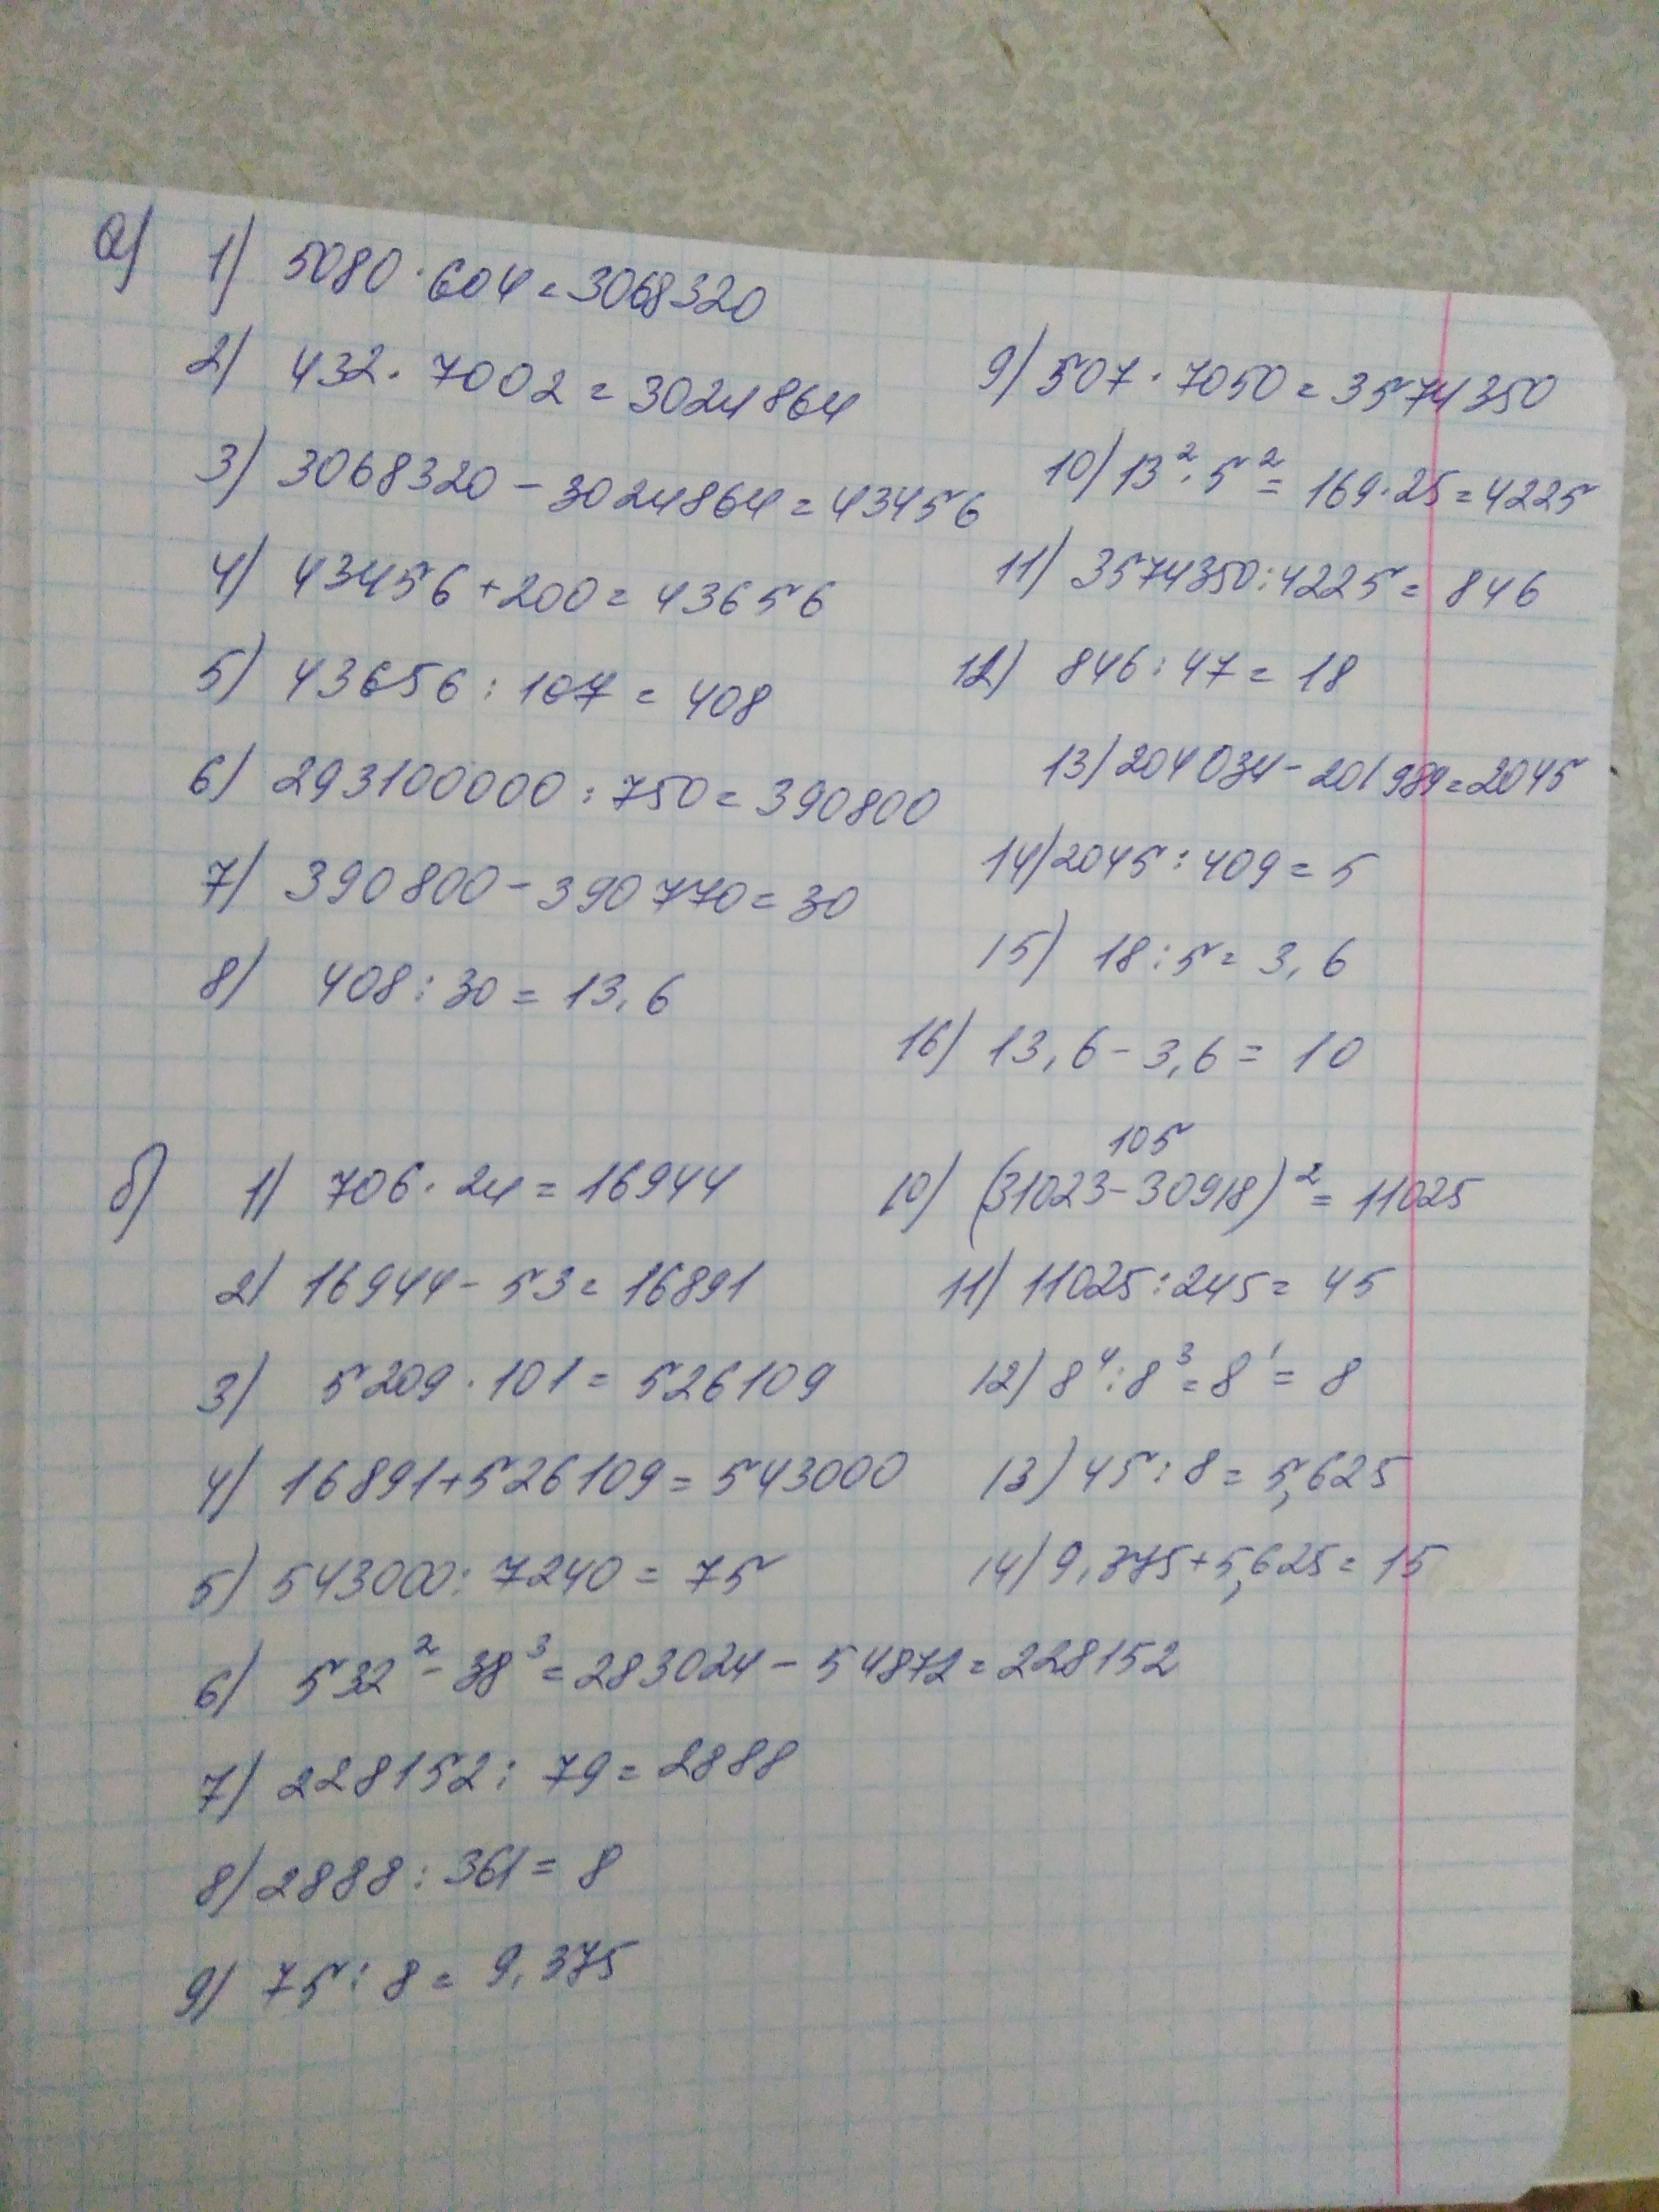 а) 1) 5080 · 604 = 3068320
2) 432 · 7002 = 3024864
3) 3068320 - 3024864 = 43456
4) 43456 + 200 = 43656
5) 43656 : 107 = 408
6) 293100000 : 750 = 390800
7) 390800 - 390770 = 30
8) 408 : 30 = 13,6
9) 507 · 7050 = 3574350
10) 13² · 5² = 169 · 25 = 4225
11) 3574350 : 4225 = 846
12) 846 : 47 = 18
13) 204034 - 201989 = 2045
14) 2045 : 409 = 5
15) 18 : 5 = 3,6
16) 13,6 - 3,6 = 10
б) 1) 706 · 24 = 16944
2) 16944 - 53 = 16891
3) 5209 · 101 = 526109
4) 16891 + 526109 = 543000
5) 543000 : 7240 = 75
6) 532² - 38³ = 283024 - 54872 = 228152
7) 228152 : 79 = 2888
8) 2888 : 361 = 8
9) 75 : 8 = 9,375
105
10) (31023 - 30918)² = 11025
11) 11025 : 245 = 45
12) 8⁴ : 8³ = 8¹ = 8
13) 45 : 8 = 5,625
14) 9,375 + 5,625 = 15